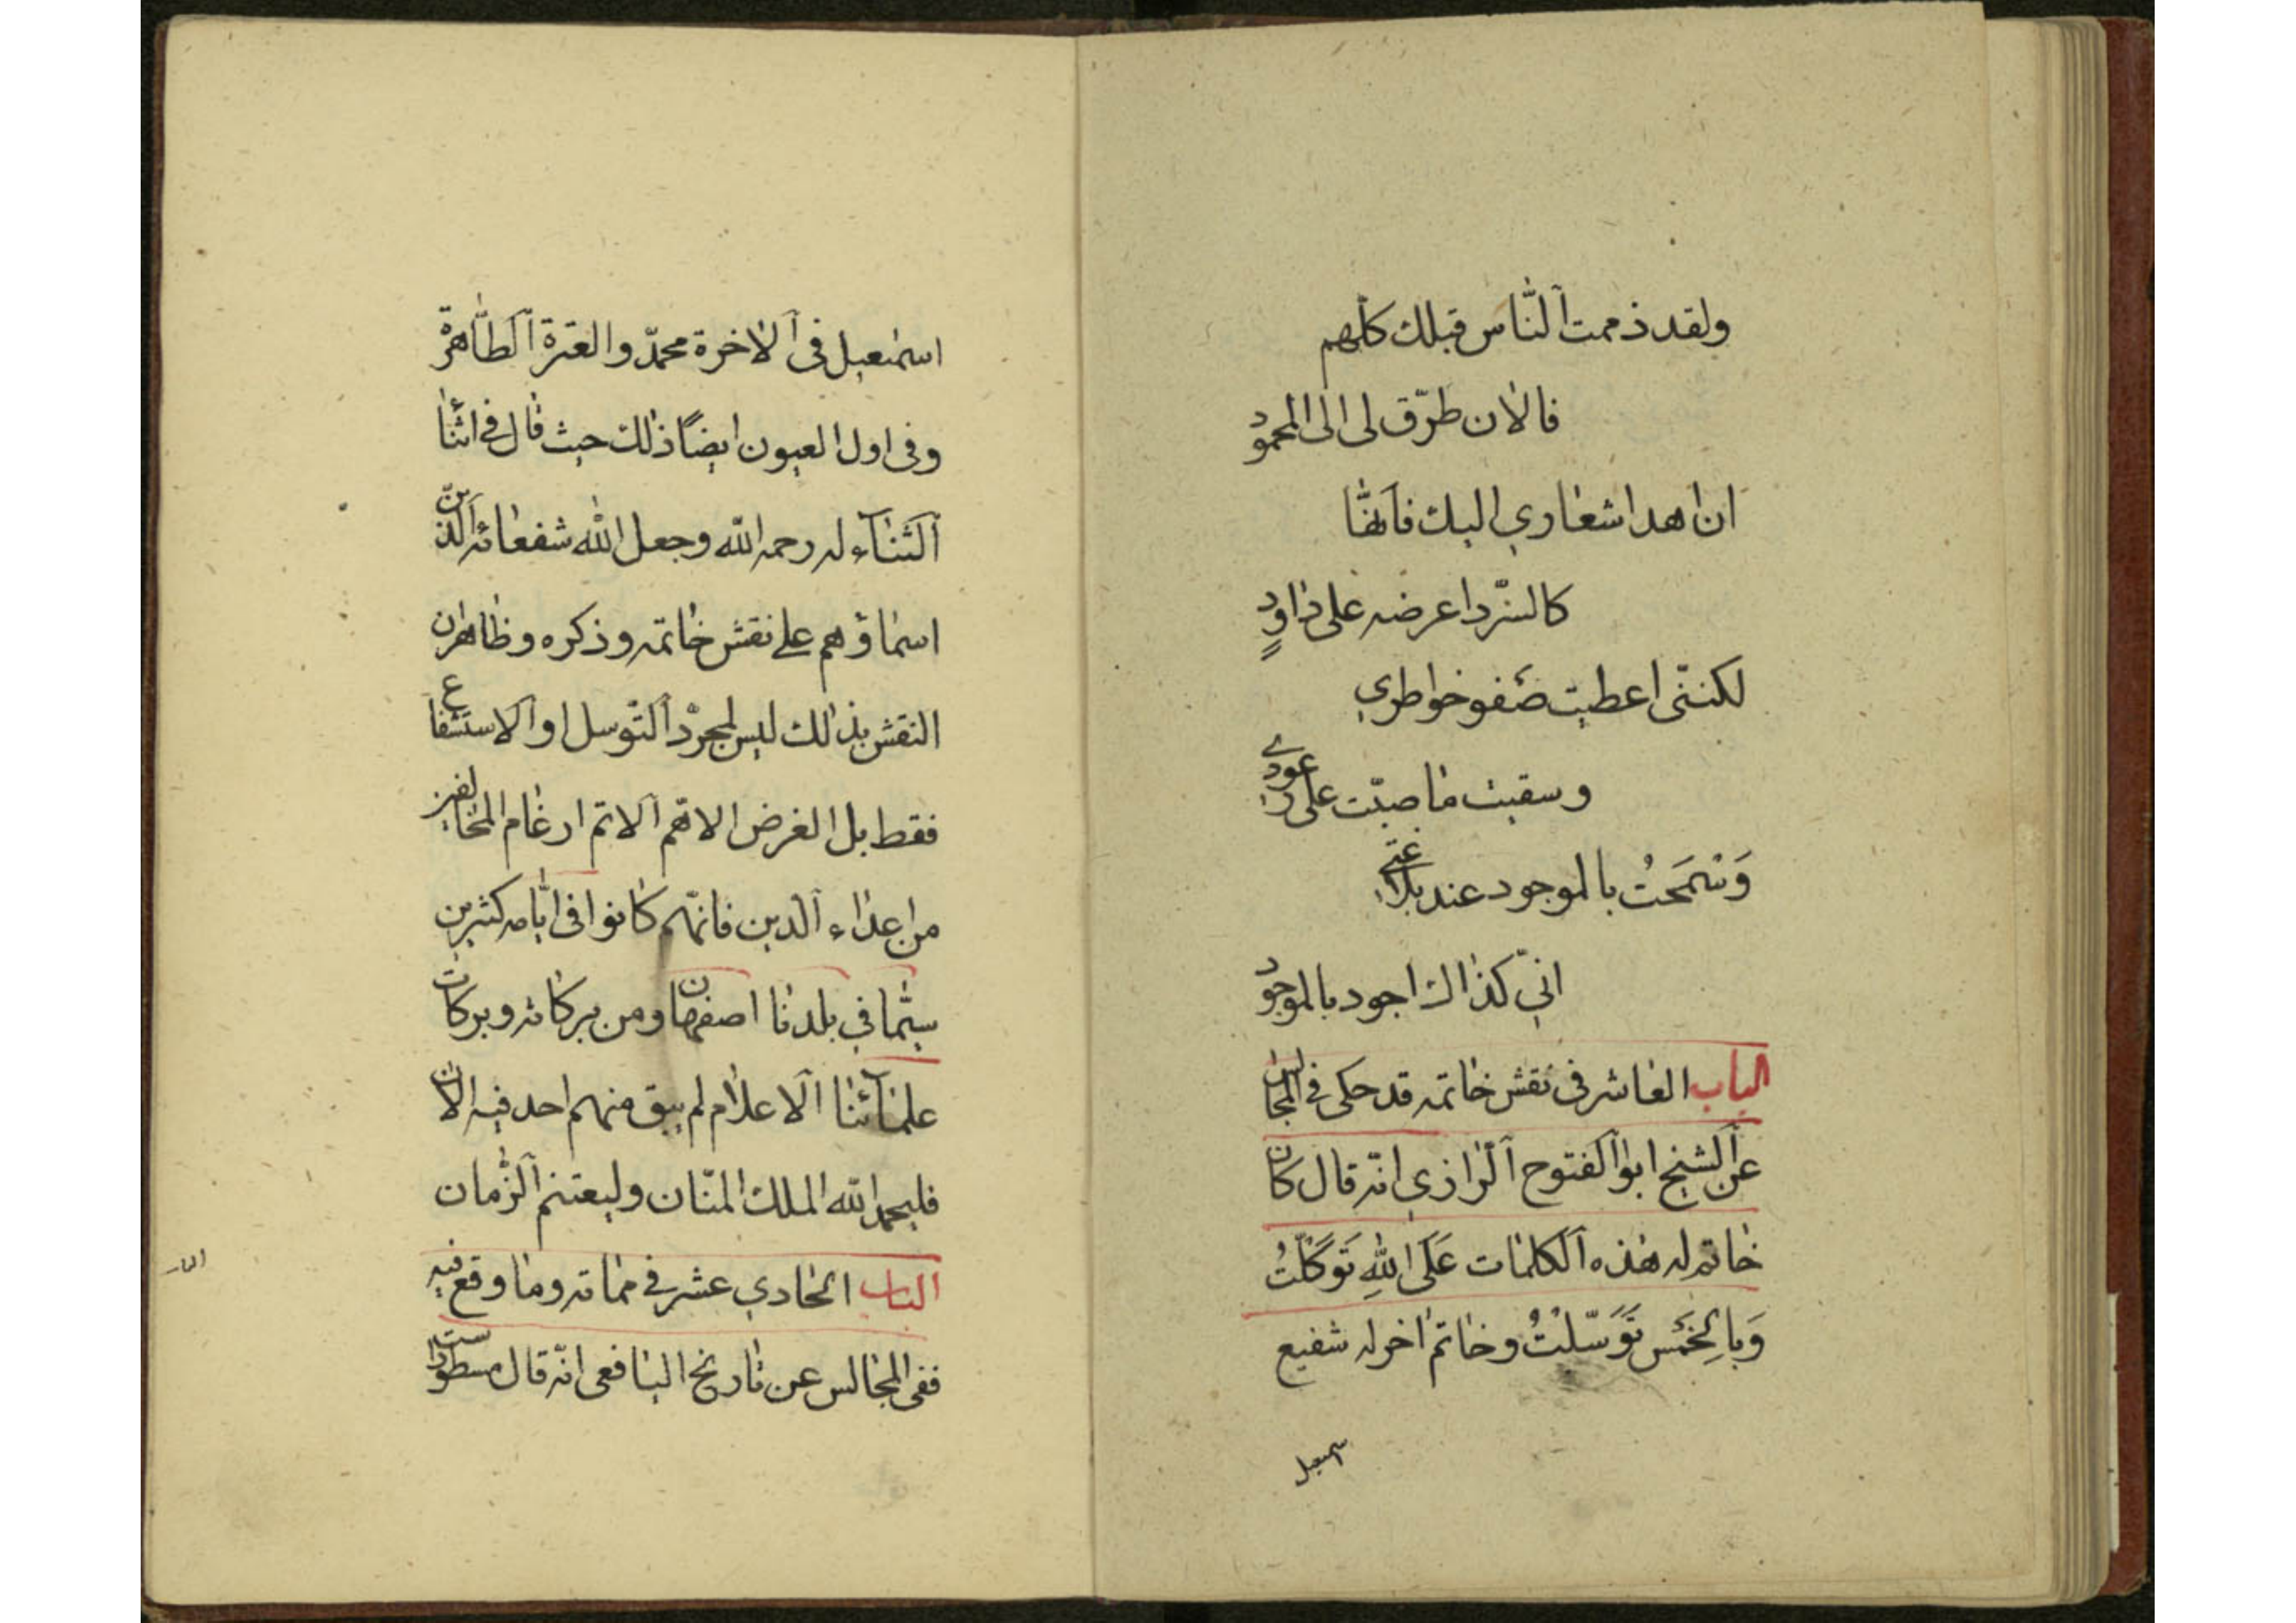 ولقد ذممت ٱلنّاس قبلك كلّهم
فالان طرّق لی الی المحمود
ان اهد اشعاري اليك فانّها
كالسّرد اعرضه علی داودٍ
لكننّی اعطيت صفو خواطري
وسقيت ما صبّت علی عودي
وَسَمَحتُ بالموجود عند بلاغتي
انّي كذاك اجود بالموجود
الباب العاشر فی نقش خاتمه قد حكی فی المجالس
عن ٱلشيخ ابو ٱلفتوح ٱلرازي انّه قال كان
خاتم له هذه ٱلكلمات عَلَی اللهِ تَوَكَّلْتُ
وَبِالخَمْسِ تَوَسَّلْتُ وخاتم اخر له شفيع
سمعيل
اسمعيل فی ٱلاخرة محمّد والعترة ٱلطّاهرة
وفی اول العيون ايضًا ذلك حيث قال فی اثنا
ٱلثنآء له رحمه الله وجعل الله شفعائه ٱلّذين
اسماؤهم علی نقش خاتمه وذكره وظاهر ان
النقش بذلك ليس لمجرّد ٱلتّوسل او ٱلاستشفاع
فقط بل الغرض الاهّم ٱلاتم ارغام المخالفين
من اعداء ٱلدين فانّهم كانوا فی ايّامه كثيرين
سيّما في بلدنا اصفهان ومن بركاته وبركات
علمآئنا ٱلاعلام لم يبق منهم احد فيه الان
فليحمد الله الملك المنّان وليغتنم ٱلزّمان
الباب الحادي عشر فی مماته وما وقع فيه
ففی المجالس عن تاريخ اليافعی انّه قال مسطور است